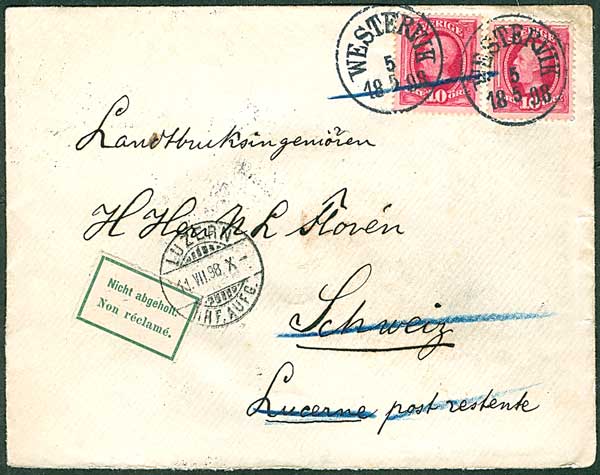 WESTERVIK
5
18 5 98
SVERIGE
10 ÖRE
WESTERVIK
5
18 5 98
Landtbruksingeniören
H Herr N L Flovén
LUZERN
11.VII.98.X
BRF.AUFG.
Nicht abgeholt.
Non réclamé.
Schweiz
Lucerne post restente